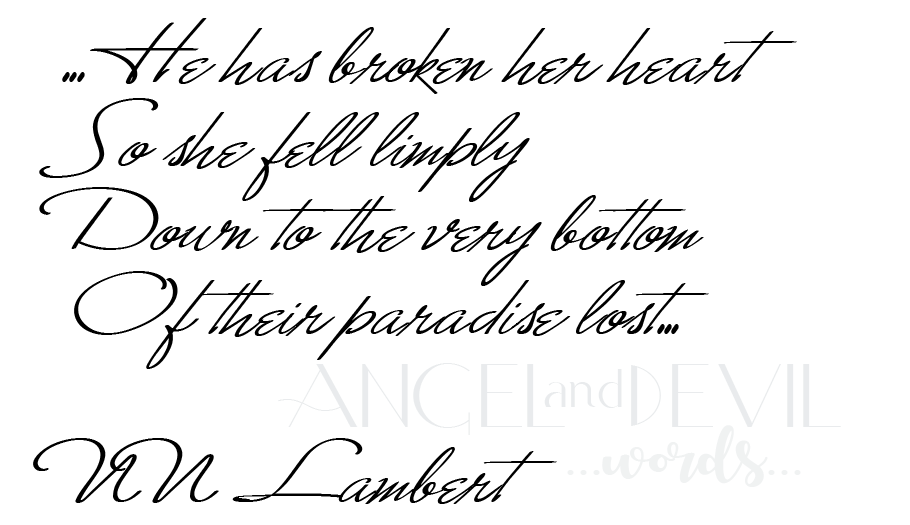 ...He has broken her heart
So she fell limply
Down to the very bottom
Of their paradise lost...
ANGEL and DEVIL
...words...
NN Lambert